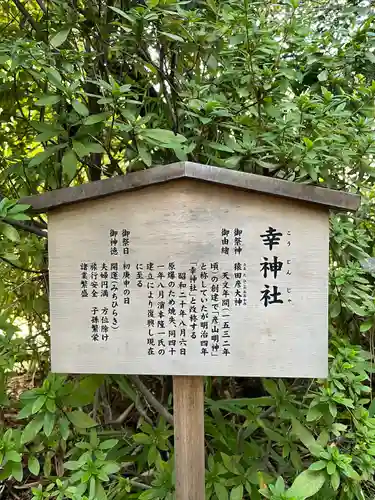 幸神社
御祭神 猿田彦大神
御由緒 天文年間(一五三二年
頃)の創建で「彦山明神」
と称していたが明治四年
「幸神社」と改称する
昭和二十年八月六日
原爆のため焼失、同四十
一年八月濱本隆一氏の
建立により復興し現在
に至る
御祭日 初庚申の日
御神徳 開運(みちひらき)
夫婦円満 方位除け
旅行安全 子孫繁栄
諸業繁盛